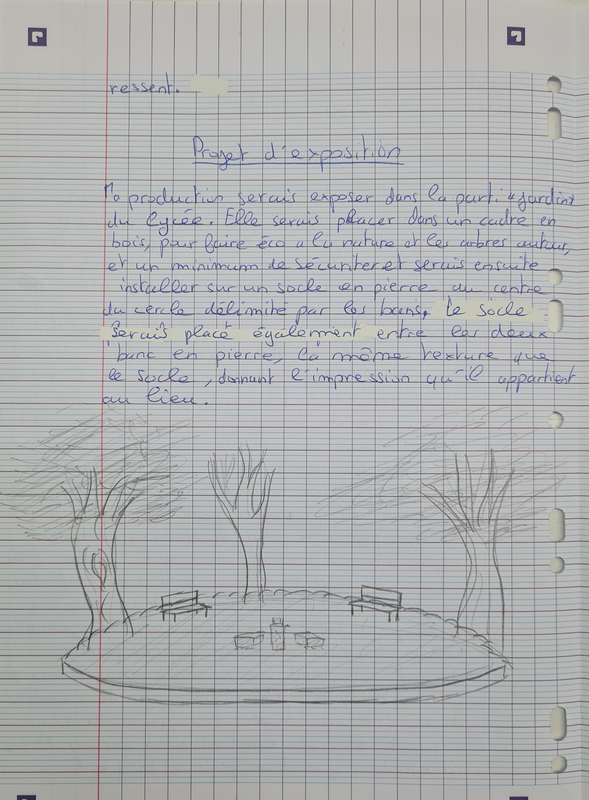 ressent.
Projet d'exposition
Ma production serais exposer dans la parti "jardin"
du lycée. Elle serais placer dans un cadre en
bois, pour faire éco a la nature et les arbres autour,
et un minimum de sécuriter et serais ensuite
installer sur un socle en pierre au centre
du cercle délimité par les bans, le socle
serais placé également entre les deux
banc en pierre, la même texture que
le socle, donnant l'impression qu'il appartient
au lieu.